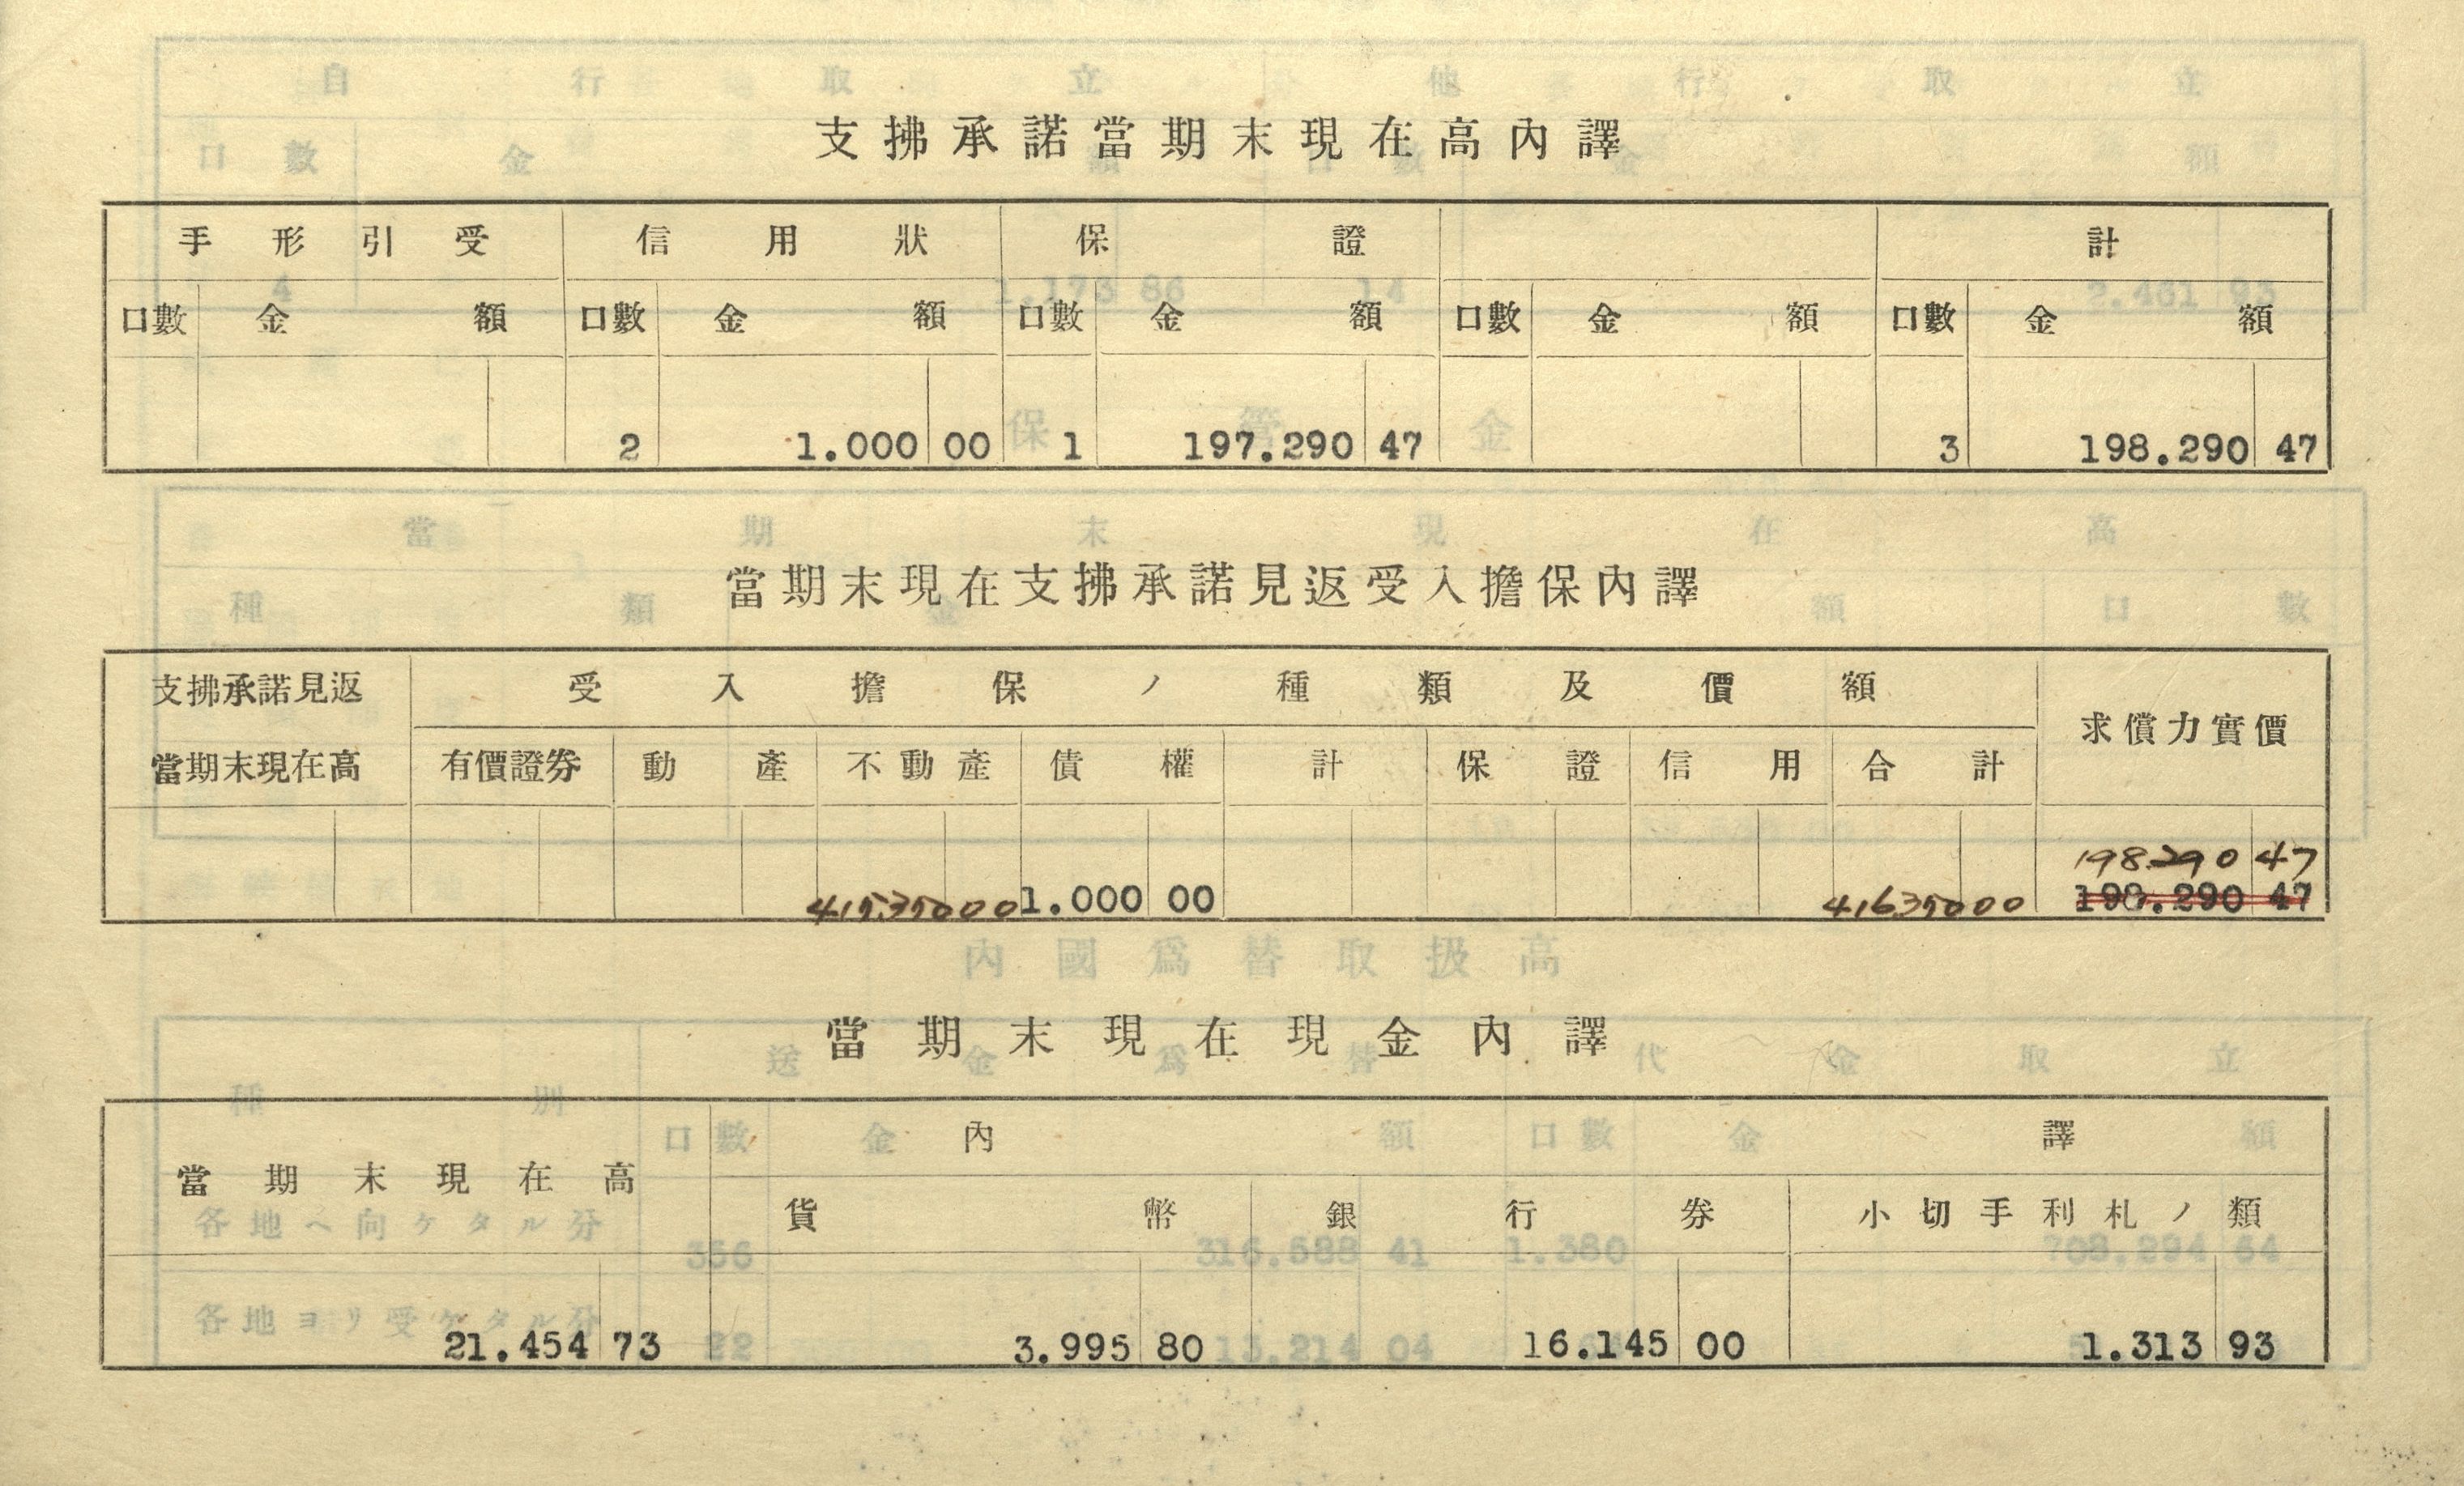 支拂承諾當期末現在高內譯
手形引受 信用狀 保證 計
口數 金額 口數 金額 口數 金額 口數 金額 口數 金額
2 1.000 00 1 197.290 47 3 198.290 47
當期末現在支拂承諾見返受入擔保內譯
支拂承諾見返 受入擔保ノ種類及價額 求償力實價
當期末現在高 有價證券 動產 不動產 債權 計 保證 信用 合計
198.290 47
415350 00 1.000 00 416350 00 198.290 47
當期末現在現金內譯
當期末現在高 內譯
貨幣 銀行券 小切手利札ノ類
21.454 73 3.995 80 16.145 00 1.313 93